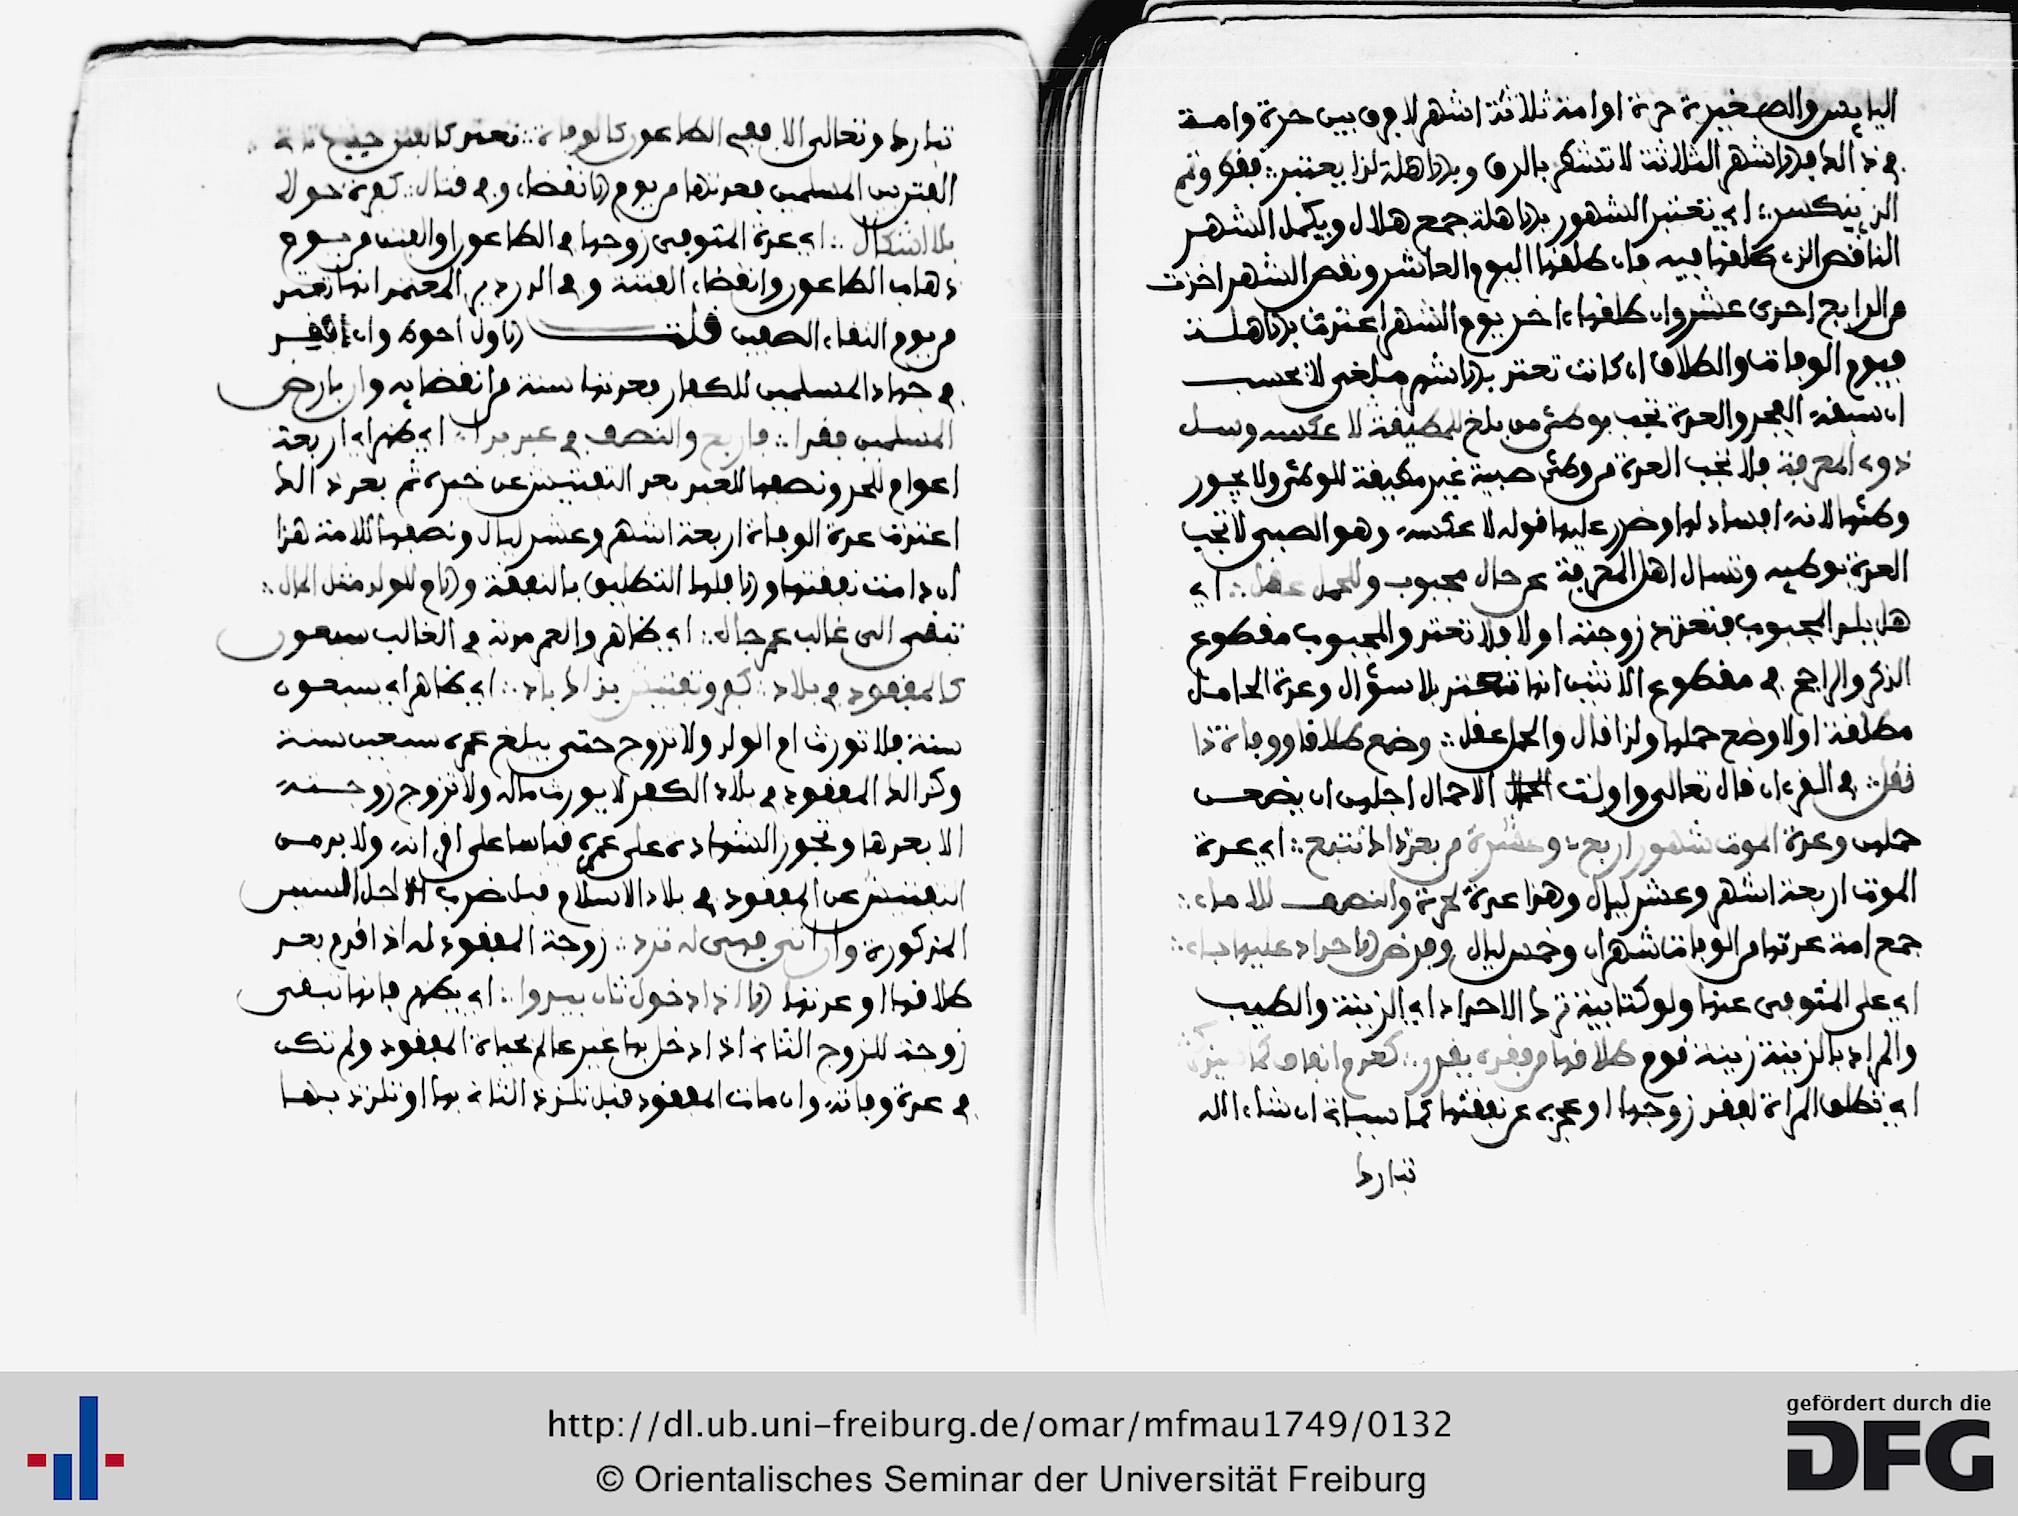 اليايس والصغيرة حرة او امة ثلاثة اشهر لا فرق بين حرة وامة
في ذالك فالاشهر الثلاثة لا تتشطر بالرق وبالاهلة لذا يعتبر فقط وتم
الذي ينكسر اي تعتبر الشهور بالاهلة جمع هلال ويكمل الشهر
الناقص الذي طلقها فيه فان طلقها اليوم العاشر ونقص الشهر اخذت
من الرابع احدى عشر وان طلقها اخر يوم الشهر اعتدت بالاهلة
فيوم الوفات والطلاق ان كانت تعتد بالاشهر ملغى لا يحسب
ان سبقه الفجر والعدة تجب بوطئ من بلغ للمطيقة لا عكسه وسل
ذوي المعرفة فلا تجب العدة من وطئ صبية غير مطيقة للوطئ ولا يجوز
وطئها لانه افساد لها وضرر عليها قوله لا عكسه وهو الصبي لا تجب
العدة بوطيه وتسال اهل المعرفة عن حال مجبوب وللحمل عقل اي
هل يلد المجبوب فتعتد زوجته اولا فلا تعتد والمجبوب مقطوع
الذكر والراجح في مقطوع الانثيين انها تعتد بلا سؤال وعدة الحامل
مطلقة اولا وضع حملها ولذا قال والحمل عقل وضع طلاقا ووفاة ذا
نقل في القرءان قال تعالى واولت الاحمال اجلهن ان يضعن
حملهن وعدة الموت شهور اربع وعشرة من بعد ذاك تتبع اي عدة
الموت اربعة اشهر وعشر ليال وهذا عدة لحرة والنصف للاماء
جمع امة عدتها من الوفات شهران وخمس ليال وفرض الاحداد عليها باء
اي على المتوفى عنها ولو كتابية ترك الاحداد اي الزينة والطيب
والمراد بالزينة زينة قوم طلاقها من فقره بقدر كعدم انفاق كما
اي تطلق المراة لفقر زوجها او عجزه عن نفقتها كما سياتي ان شاء الله
تبارك
تبارك وتعالى الا فقهي الطاعون كالوفاة تعتد كالفقد
الفتن بين المسلمين فعدتها من يوم الانقضاء وفي قتال كفرة حولا
بلا اشكال اي عدة المتوفى زوجها في الطاعون او الفتن من يوم
ذهاب الطاعون وانقضاء الفتنة وفي الدردير المعتمد انها تعتد
من يوم التقاء الصفين قلت الاول احوط وان فقد
في جهاد المسلمين للكفار فعدتها سنة من انقضايه وان بارض
المسلمين فقدا فاربع والنصف في عبد بدا اي ظهر اي اربعة
اعوام للحر ونصفها للعبد بعد التفتيش عن خبره ثم بعد ذالك
اعتدت عدة الوفاة اربعة اشهر وعشر ليال ونصفها للامة هذا
ان دامت نفقتها والا فلها التطليق بالنفقة والام للولد مثل المال
تبقى الى غالب عمر جال اي ظاهر والعمر مدته في الغالب سبعون
كالمفقود في بلاد كفر وتفتيش بذاك باد اي ظاهر اي سبعون
سنة فلا تورث ام الولد ولا تزوج حتى يبلغ عمره سبعين سنة
وكذالك المفقود في بلاد الكفر لا يورث ماله ولا تزوج زوجته
الا بعدها وتجوز الشهادة على عمره قياسا على اقرانه ولا بد من
التفتيش عن المفقود في بلاد الاسلام قبل ضرب الاجل السنين
المذكورة وان اتى فهي له ترد زوجة المفقود له اذا قدم بعد
طلاقها او عدتها الا اذا دخول ثان يبدوا اي يظهر فانها تبقى
زوجة للزوج الثاني اذا دخل بها غير عالم بحياة المفقود ولم تكن
في عدة وفاته وان مات المفقود قبل تلذذ الثاني بها او تلذذ بها
http://dl.ub.uni-freiburg.de/omar/mfmau1749/0132
© Orientalisches Seminar der Universität Freiburg
gefördert durch die
DFG